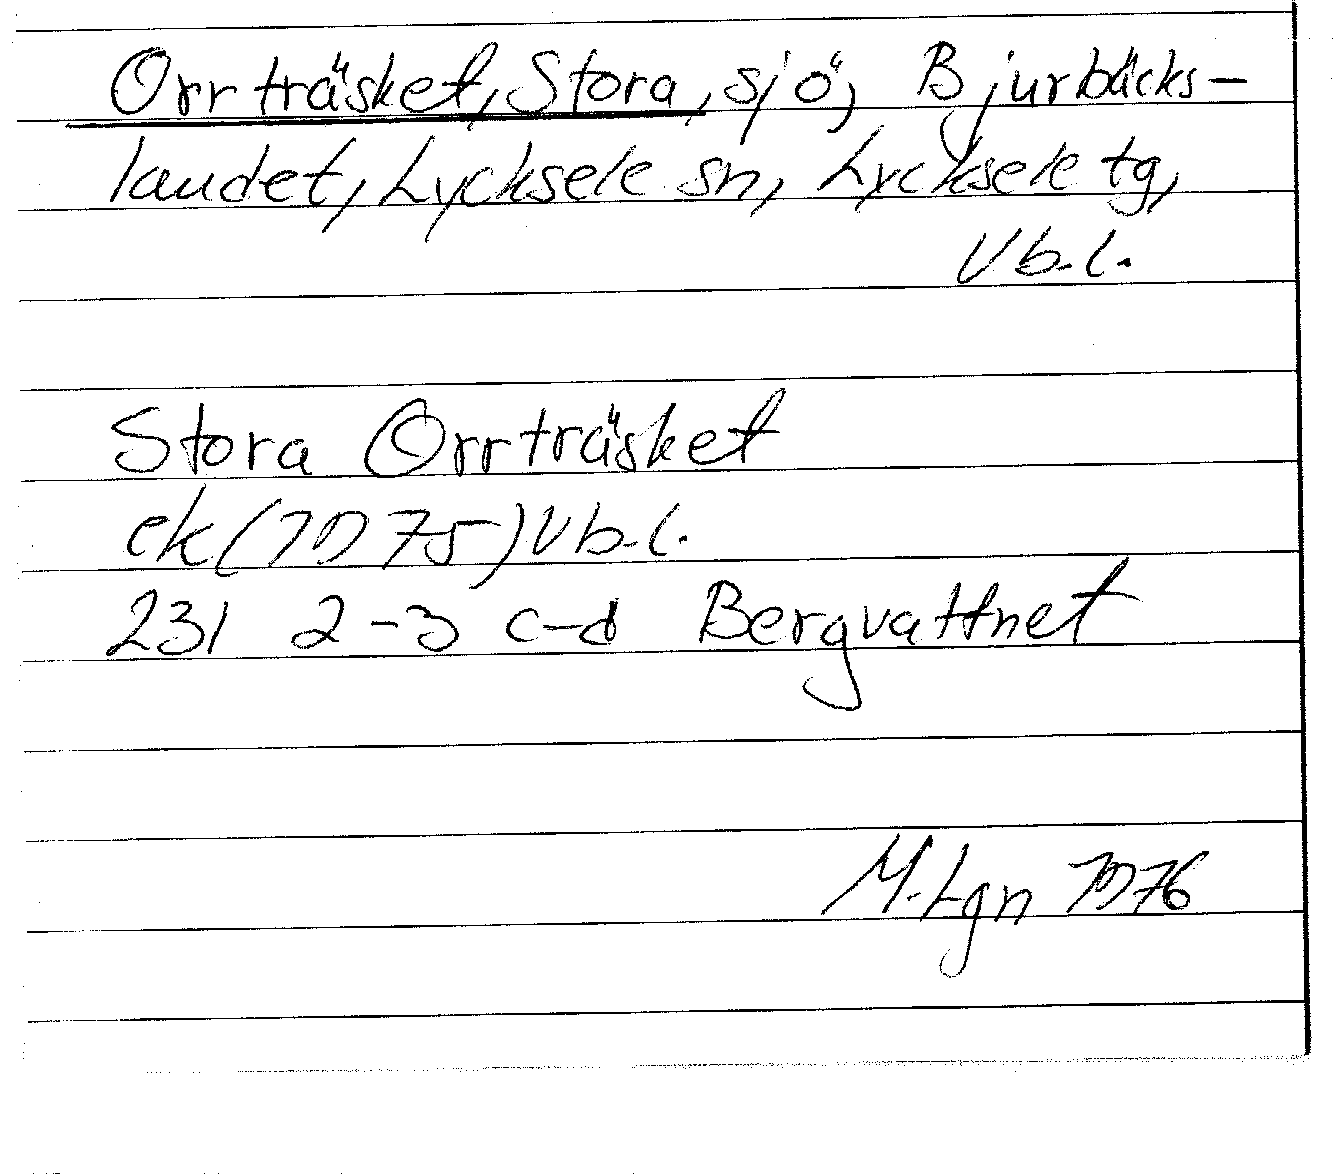 Orrträsket, Stora, sjö, Bjurbäcks-
landet, Lycksele sn, Lycksele tg,
Vb.l.
Stora Orrträsket
ek (1975) Vb.l.
231 2-3 c-d Bergvattnet
M. Lgn 1976